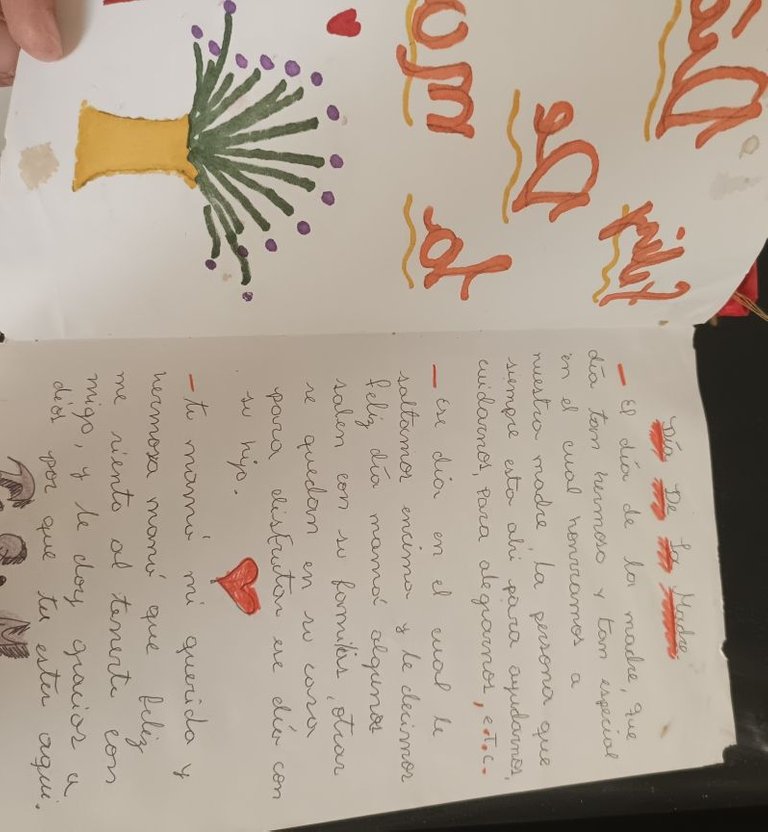 feliz Día
De
la
Día De La Madre
- El día de la madre, que
día tan hermoso y tan especial
en el cual honramos a
nuestra madre la persona que
siempre esta ahi para ayudarnos,
cuidarnos, para alegrarnos, e.t.c.
- Ese día en el cual le
saltamos encima y le decimos
feliz día mamá algunos
salen con su familias, otras
se quedan en su casa
para disfrutar ese día con
su hijo.
- tu mamá mi querida y
hermosa mamá que feliz
me siento al tenerte con
migo, y le doy gracias a
dios por que tu estes aqui.